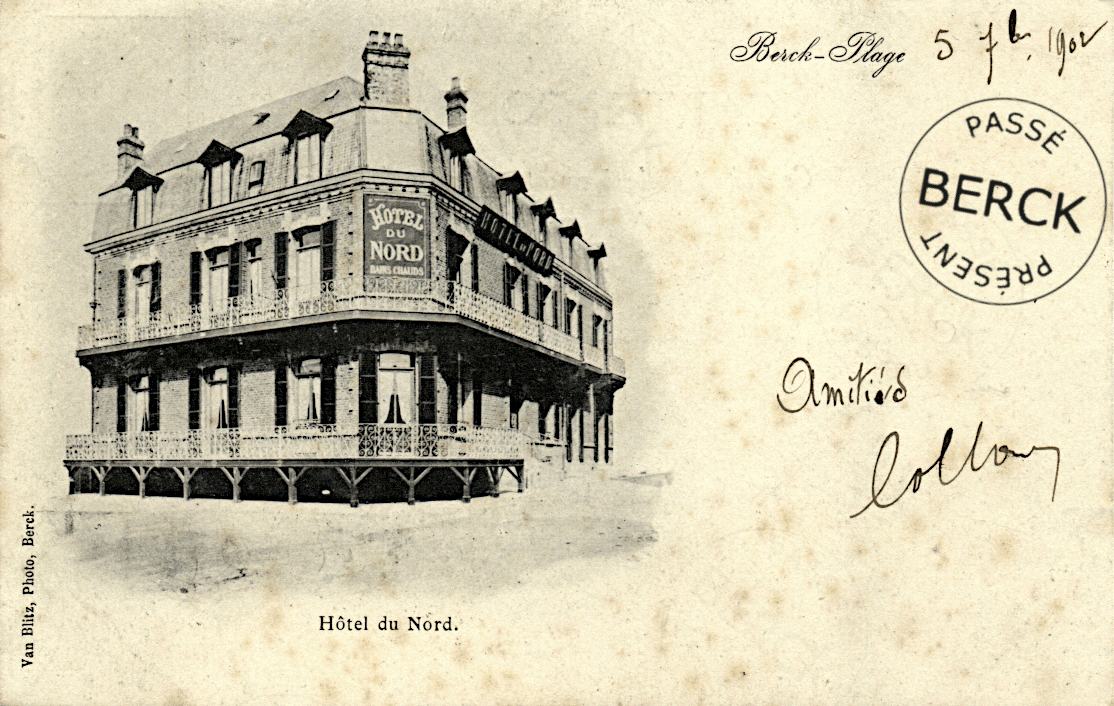 Berck-Plage 5 7bre 1902
PASSÉ
BERCK
PRÉSENT
HOTEL
DU
NORD
BAINS CHAUDS
HOTEL DU NORD
Amitiés
Van Blitz, Photo, Berck.
Hôtel du Nord.